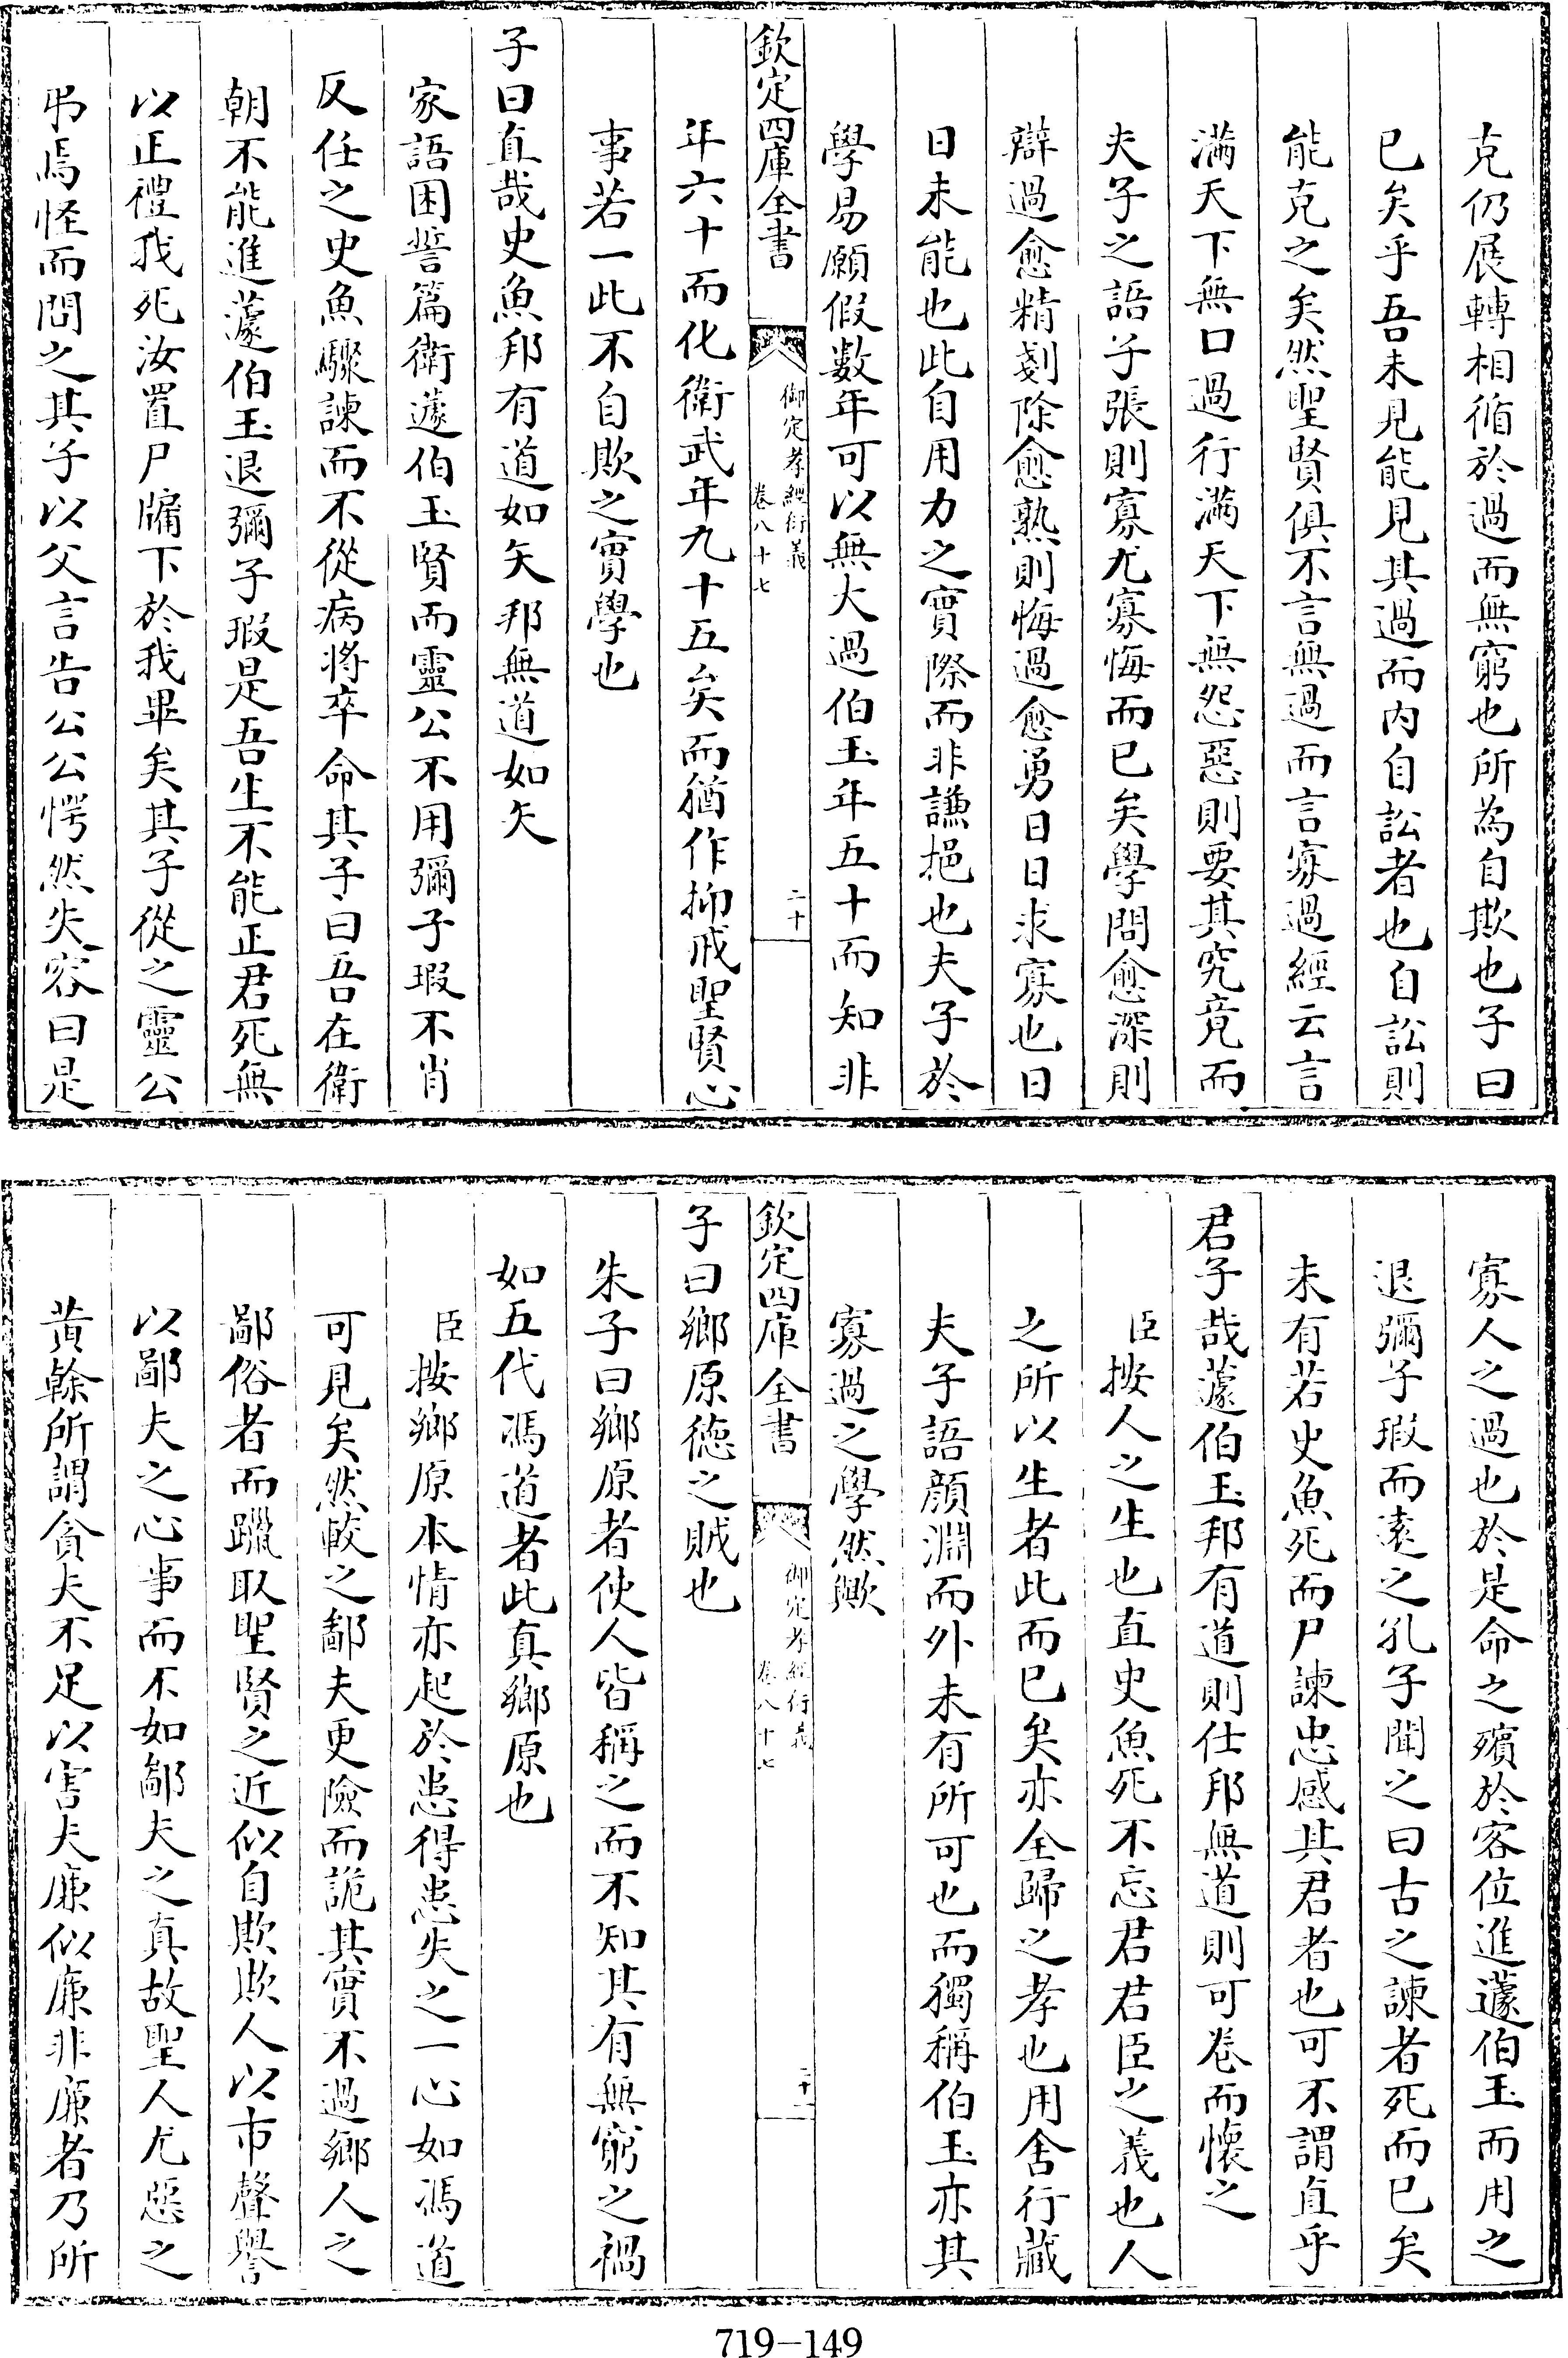 克仍展轉相循於過而無窮也所為自欺也子曰
已矣乎吾未見能見其過而内自訟者也自訟則
能克之矣然聖賢俱不言無過而言寡過經云言
滿天下無口過行滿天下無怨惡則要其究竟而
夫子之語子張則寡尤寡悔而已矣學問愈深則
辯過愈精剗除愈熟則悔過愈勇日日求寡也日
日未能也此自用力之實際而非謙挹也夫子於
學易願假數年可以無大過伯玉年五十而知非
欽定四庫全書
御定孝經衍義
卷八十七
二十
年六十而化衛武年九十五矣而猶作抑戒聖賢心
事若一此不自欺之實學也
子曰直哉史魚邦有道如矢邦無道如矢
家語困誓篇衛蘧伯玉賢而靈公不用彌子瑕不肖
反任之史魚驟諫而不從病將卒命其子曰吾在衛
朝不能進蘧伯玉退彌子瑕是吾生不能正君死無
以正禮我死汝置尸牖下於我畢矣其子從之靈公
弔焉怪而問之其子以父言告公公愕然失容曰是
寡人之過也於是命之殯於客位進蘧伯玉而用之
退彌子瑕而逺之孔子聞之曰古之諫者死而已矣
未有若史魚死而尸諫忠感其君者也可不謂直乎
君子哉蘧伯玉邦有道則仕邦無道則可卷而懷之
臣按人之生也直史魚死不忘君君臣之義也人
之所以生者此而已矣亦全歸之孝也用舍行藏
夫子語顔淵而外未有所可也而獨稱伯玉亦其
寡過之學然歟
欽定四庫全書
御定孝經衍義
卷八十七
二十一
子曰鄉原徳之賊也
朱子曰鄉原者使人皆稱之而不知其有無窮之禍
如五代馮道者此真鄉原也
臣按鄉原本情亦起於患得患失之一心如馮道
可見矣然較之鄙夫更險而詭其實不過鄉人之
鄙俗者而躐取聖賢之近似自欺欺人以市聲譽
以鄙夫之心事而不如鄙夫之真故聖人尤惡之
黃榦所謂貪夫不足以害夫廉似廉非廉者乃所
719-149